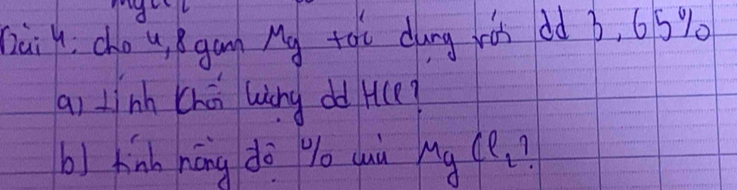 Bài 4: cho 4,8 gam Mg tác dụng với dd 3,65%
a) tính khối lượng dd HCl?
b) tính nồng độ % của MgCl₂?